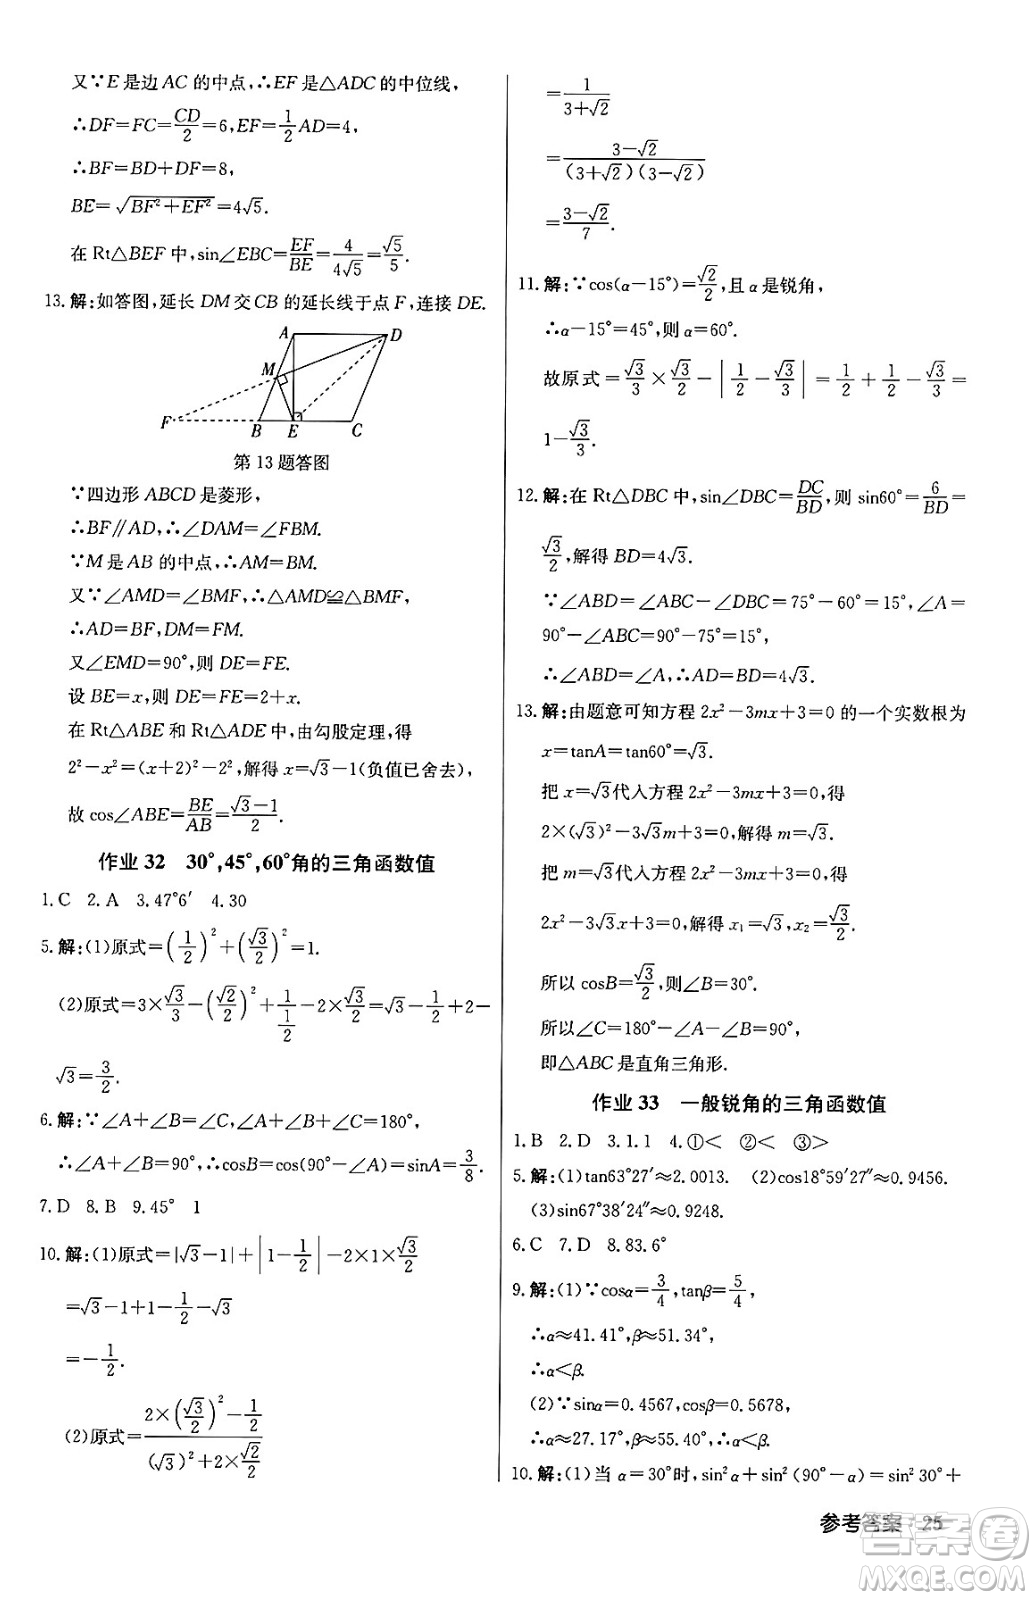 又∵E是边AC的中点,∴EF是△ADC的中位线,
∴DF=FC=CD/2=6,EF=1/2AD=4,
∴BF=BD+DF=8,
BE=√(BF²+EF²)=4√5.
在Rt△BEF中,sin∠EBC=EF/BE=4/(4√5)=√5/5.
13.解:如答图,延长DM交CB的延长线于点F,连接DE.
A D
M
F B E C
第13题答图
∵四边形ABCD是菱形,
∴BF∥AD,∴∠DAM=∠FBM.
∵M是AB的中点,∴AM=BM.
又∵∠AMD=∠BMF,∴△AMD≌△BMF,
∴AD=BF,DM=FM.
又∠EMD=90°,则DE=FE.
设BE=x,则DE=FE=2+x.
在Rt△ABE和Rt△ADE中,由勾股定理,得
2²-x²=(x+2)²-2²,解得x=√3-1(负值已舍去),
故cos∠ABE=BE/AB=(√3-1)/2.
作业32 30°,45°,60°角的三角函数值
1.C 2.A 3.47°6′ 4.30
5.解:(1)原式=(1/2)²+(√3/2)²=1.
(2)原式=3×√3/3-(√2/2)²+1/(1/2)-2×√3/2=√3-1/2+2-
√3=3/2.
6.解:∵∠A+∠B=∠C,∠A+∠B+∠C=180°,
∴∠A+∠B=90°,∴cosB=cos(90°-A)=sinA=3/8.
7.D 8.B 9.45° 1
10.解:(1)原式=|√3-1|+|1-1/2|-2×1×√3/2
=√3-1+1-1/2-√3
=-1/2.
(2)原式=(2×(√3/2)²-1/2)/((√3)²+2×√2/2)
=1/(3+√2)
=(3-√2)/((3+√2)(3-√2))
=(3-√2)/7.
11.解:∵cos(α-15°)=√2/2,且α是锐角,
∴α-15°=45°,则α=60°.
故原式=√3/3×√3/2-|1/2-√3/3|=1/2+1/2-√3/3=
1-√3/3.
12.解:在Rt△DBC中,sin∠DBC=DC/BD,则sin60°=6/BD=
√3/2,解得BD=4√3.
∵∠ABD=∠ABC-∠DBC=75°-60°=15°,∠A=
90°-∠ABC=90°-75°=15°,
∴∠ABD=∠A,∴AD=BD=4√3.
13.解:由题意可知方程2x²-3mx+3=0的一个实数根为
x=tanA=tan60°=√3.
把x=√3代入方程2x²-3mx+3=0,得
2×(√3)²-3√3m+3=0,解得m=√3.
把m=√3代入方程2x²-3mx+3=0,得
2x²-3√3x+3=0,解得x₁=√3,x₂=√3/2.
所以cosB=√3/2,则∠B=30°.
所以∠C=180°-∠A-∠B=90°.
即△ABC是直角三角形.
作业33 一般锐角的三角函数值
1.B 2.D 3.1.1 4.①< ②< ③>
5.解:(1)tan63°27′≈2.0013. (2)cos18°59′27″≈0.9456.
(3)sin67°38′24″≈0.9248.
6.C 7.D 8.83.6°
9.解:(1)∵cosα=3/4,tanβ=5/4,
∴α≈41.41°,β≈51.34°,
∴α<β.
(2)∵sinα=0.4567,cosβ=0.5678,
∴α≈27.17°,β≈55.40°,∴α<β.
10.解:(1)当α=30°时,sin²α+sin²(90°-α)=sin²30°+
参考答案 25
答案圈
MXQE.COM